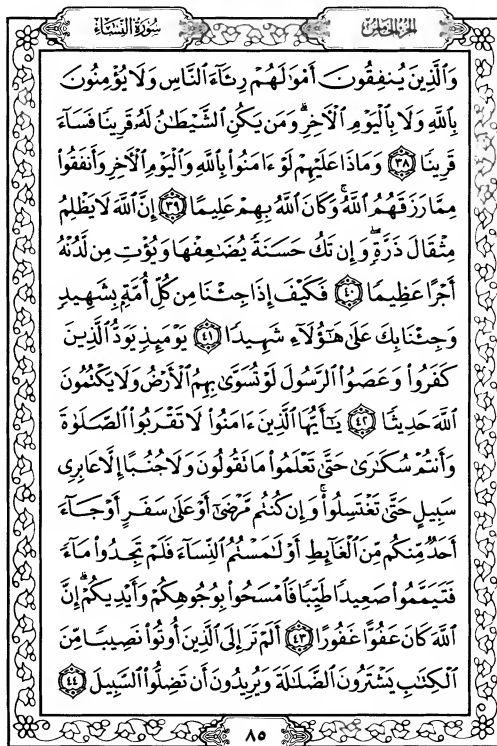 سُورَةُ النِّسَاءِ
الجزء الخامس
وَالَّذِينَ يُنفِقُونَ أَمْوَٰلَهُمْ رِئَآءَ النَّاسِ وَلَا يُؤْمِنُونَ
بِاللَّهِ وَلَا بِالْيَوْمِ الْآخِرِ ۗ وَمَن يَكُنِ الشَّيْطَٰنُ لَهُۥ قَرِينًا فَسَآءَ
قَرِينًا ٣٨ وَمَاذَا عَلَيْهِمْ لَوْ ءَامَنُوا۟ بِاللَّهِ وَالْيَوْمِ الْآخِرِ وَأَنفَقُوا۟
مِمَّا رَزَقَهُمُ اللَّهُ ۚ وَكَانَ اللَّهُ بِهِمْ عَلِيمًا ٣٩ إِنَّ اللَّهَ لَا يَظْلِمُ
مِثْقَالَ ذَرَّةٍ ۖ وَإِن تَكُ حَسَنَةً يُضَٰعِفْهَا وَيُؤْتِ مِن لَّدُنْهُ
أَجْرًا عَظِيمًا ٤٠ فَكَيْفَ إِذَا جِئْنَا مِن كُلِّ أُمَّةٍۭ بِشَهِيدٍ
وَجِئْنَا بِكَ عَلَىٰ هَٰٓؤُلَآءِ شَهِيدًا ٤١ يَوْمَئِذٍ يَوَدُّ الَّذِينَ
كَفَرُوا۟ وَعَصَوُا۟ الرَّسُولَ لَوْ تُسَوَّىٰ بِهِمُ الْأَرْضُ وَلَا يَكْتُمُونَ
اللَّهَ حَدِيثًا ٤٢ يَٰٓأَيُّهَا الَّذِينَ ءَامَنُوا۟ لَا تَقْرَبُوا۟ الصَّلَوٰةَ
وَأَنتُمْ سُكَٰرَىٰ حَتَّىٰ تَعْلَمُوا۟ مَا تَقُولُونَ وَلَا جُنُبًا إِلَّا عَابِرِى
سَبِيلٍ حَتَّىٰ تَغْتَسِلُوا۟ ۚ وَإِن كُنتُم مَّرْضَىٰٓ أَوْ عَلَىٰ سَفَرٍ أَوْ جَآءَ
أَحَدٌ مِّنكُم مِّنَ الْغَآئِطِ أَوْ لَٰمَسْتُمُ النِّسَآءَ فَلَمْ تَجِدُوا۟ مَآءً
فَتَيَمَّمُوا۟ صَعِيدًا طَيِّبًا فَامْسَحُوا۟ بِوُجُوهِكُمْ وَأَيْدِيكُمْ ۗ إِنَّ
اللَّهَ كَانَ عَفُوًّا غَفُورًا ٤٣ أَلَمْ تَرَ إِلَى الَّذِينَ أُوتُوا۟ نَصِيبًا مِّنَ
الْكِتَٰبِ يَشْتَرُونَ الضَّلَٰلَةَ وَيُرِيدُونَ أَن تَضِلُّوا۟ السَّبِيلَ ٤٤
٨٥